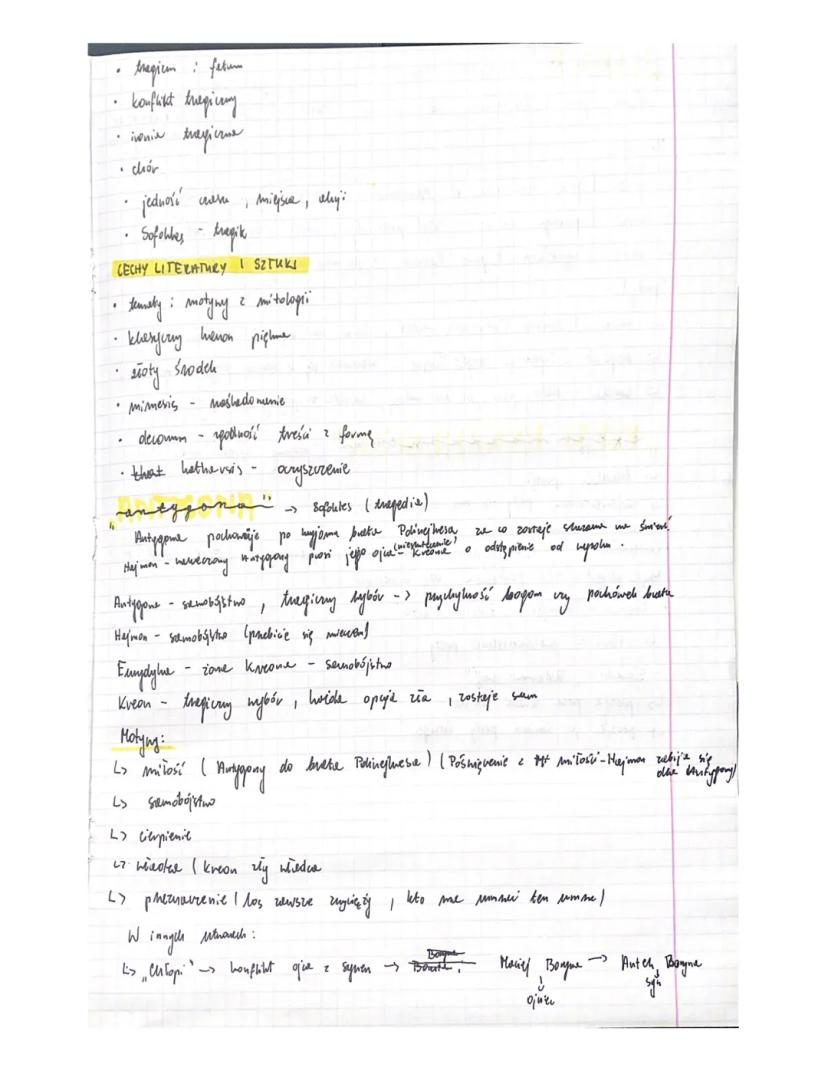 • tragizm i fatum
• konflikt tragiczny
• ironia tragiczna
• chór
• jedność czasu, miejsca, akcji
• Sofokles - tragik
CECHY LITERATURY I SZTUKI
• tematy i motywy z mitologii
• klasyczny kanon piękna
• złoty środek
• mimesis - naśladowanie
• decorum - zgodność treści z formą
• katharsis - oczyszczenie
"antygona" -> Sofokles (tragedia)
Antygona pochowuje po kryjomu brata Polinejkesa za co zostaje skazana na śmierć.
Hajmon - narzeczony Antygony prosi jego ojca (nieskutecznie) - Kreona o odstąpienie od wyroku.
Antygona - samobójstwo, tragiczny wybór -> przychylność bogom czy pochówek brata
Hajmon - samobójstwo (przebicie się mieczem)
Eurydyka - żona Kreona - samobójstwo
Kreon - tragiczny wybór, każda opcja zła, zostaje sam
Motywy:
↳ miłość (Antygony do brata Polinejkesa) (Poświęcenie z miłości - Hajmon zabija się dla Antygony)
↳ samobójstwo
↳ cierpienie
↳ władca (Kreon zły władca
↳ przeznaczenie (los zawsze zwycięży, kto ma umrzeć ten umrze)
W innych utworach:
↳ "Chłopi" -> konflikt ojca z synem -> Maciej Boryna -> Antek Boryna
ojciec syn